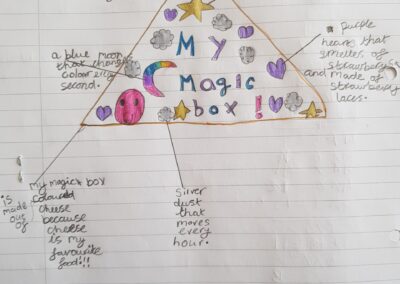 My
Magic
box!
a blue moon
that changes
colour every
second.
purple
hearts that
smells of
strawberrys
and made of
strawberry
laces.
my magic box
is coloured
made cheese
out because
of cheese
is my
favourite
food!!
silver
dust
that
moves
every
hour.